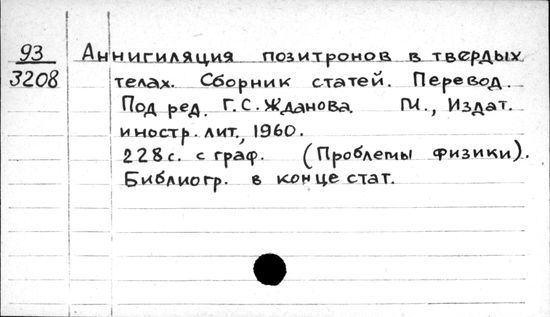 93
3208
Аннигиляция позитронов в твердых
телах. Сборник статей. Перевод.
Под ред. Г.С. Жданова М., Издат.
иностр. лит., 1960.
228с. с граф. (Проблемы физики).
Библиогр. в конце стат.